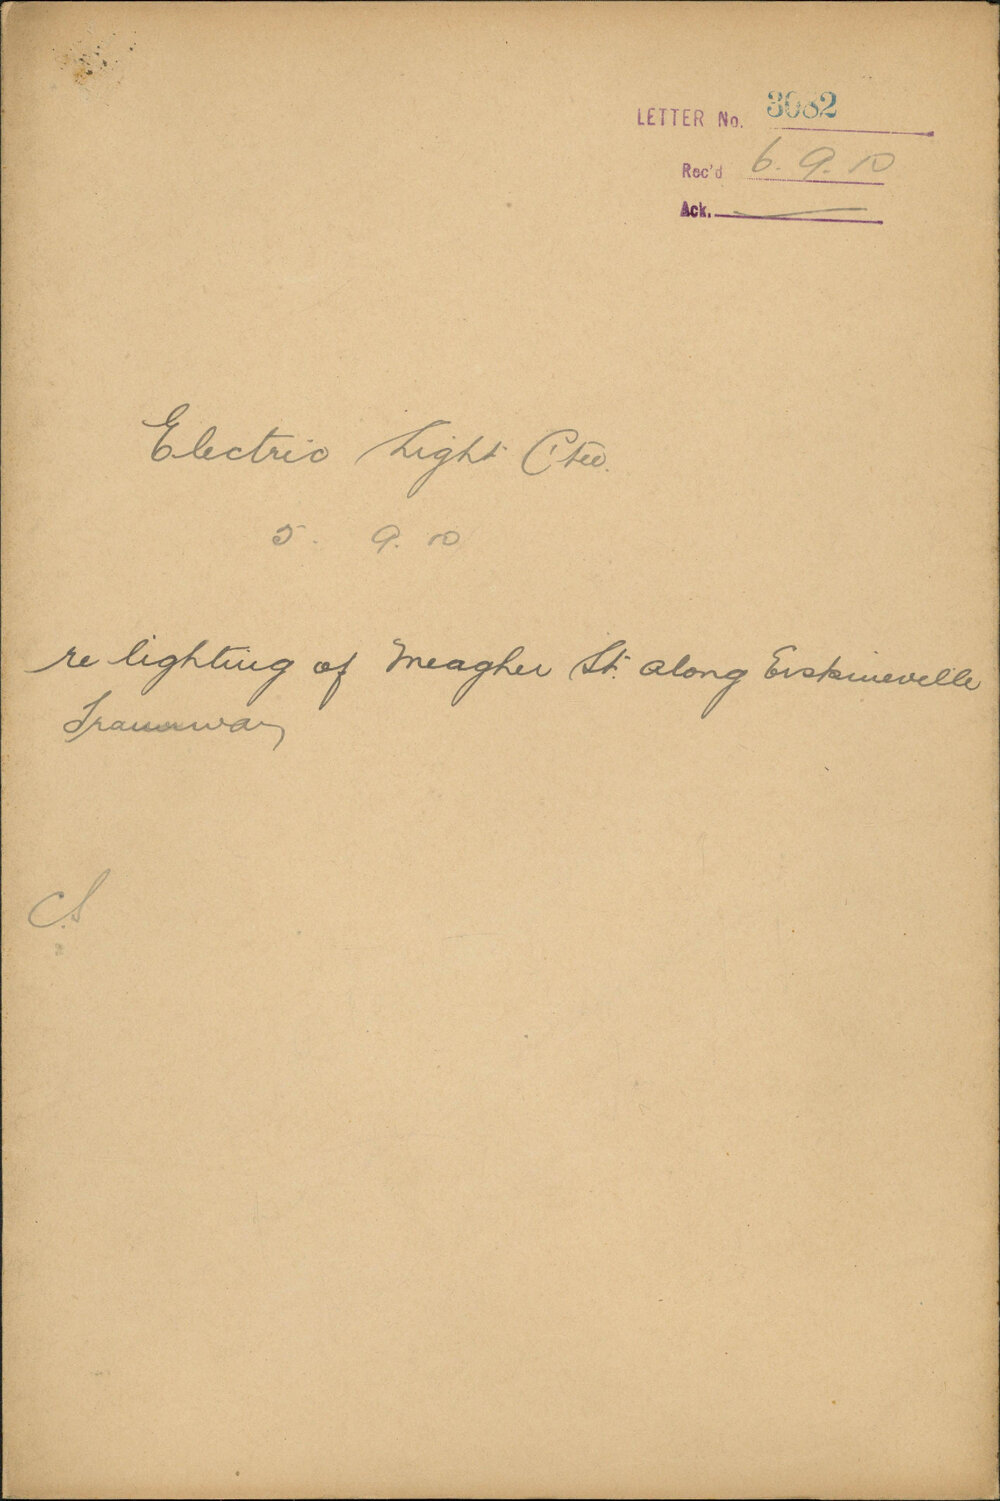 LETTER No. 3082
Rec'd 6.9.10
Ack.
Electric Light Ctee.
5. 9. 10
re lighting of Meagher St. along Erskineville
Tramway
C.S